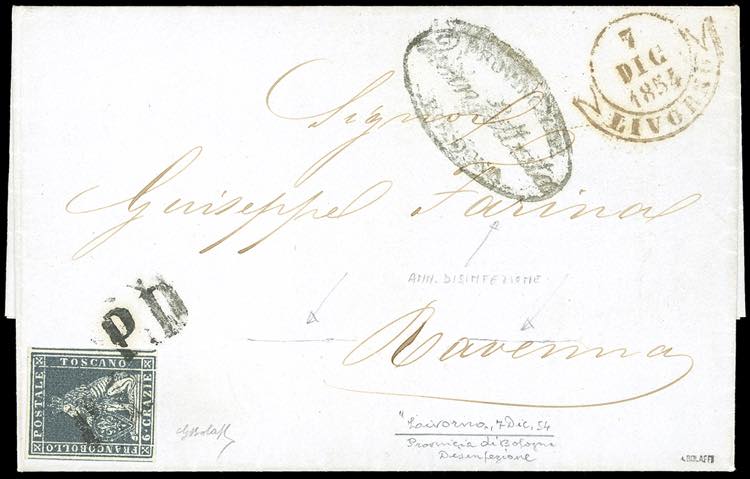 7
DIG
1854
LIVORNO
Signor
Guiseppe Farina
ANN. DISINFEZIONE
Ravenna
P.D
TOSCANO
POSTALE
6 CRAZIE
FRANCOBOLLO
"Livorno, 7 Dic, 54
Provincia di Bologna
Desinfezione
A. BOLAFFI